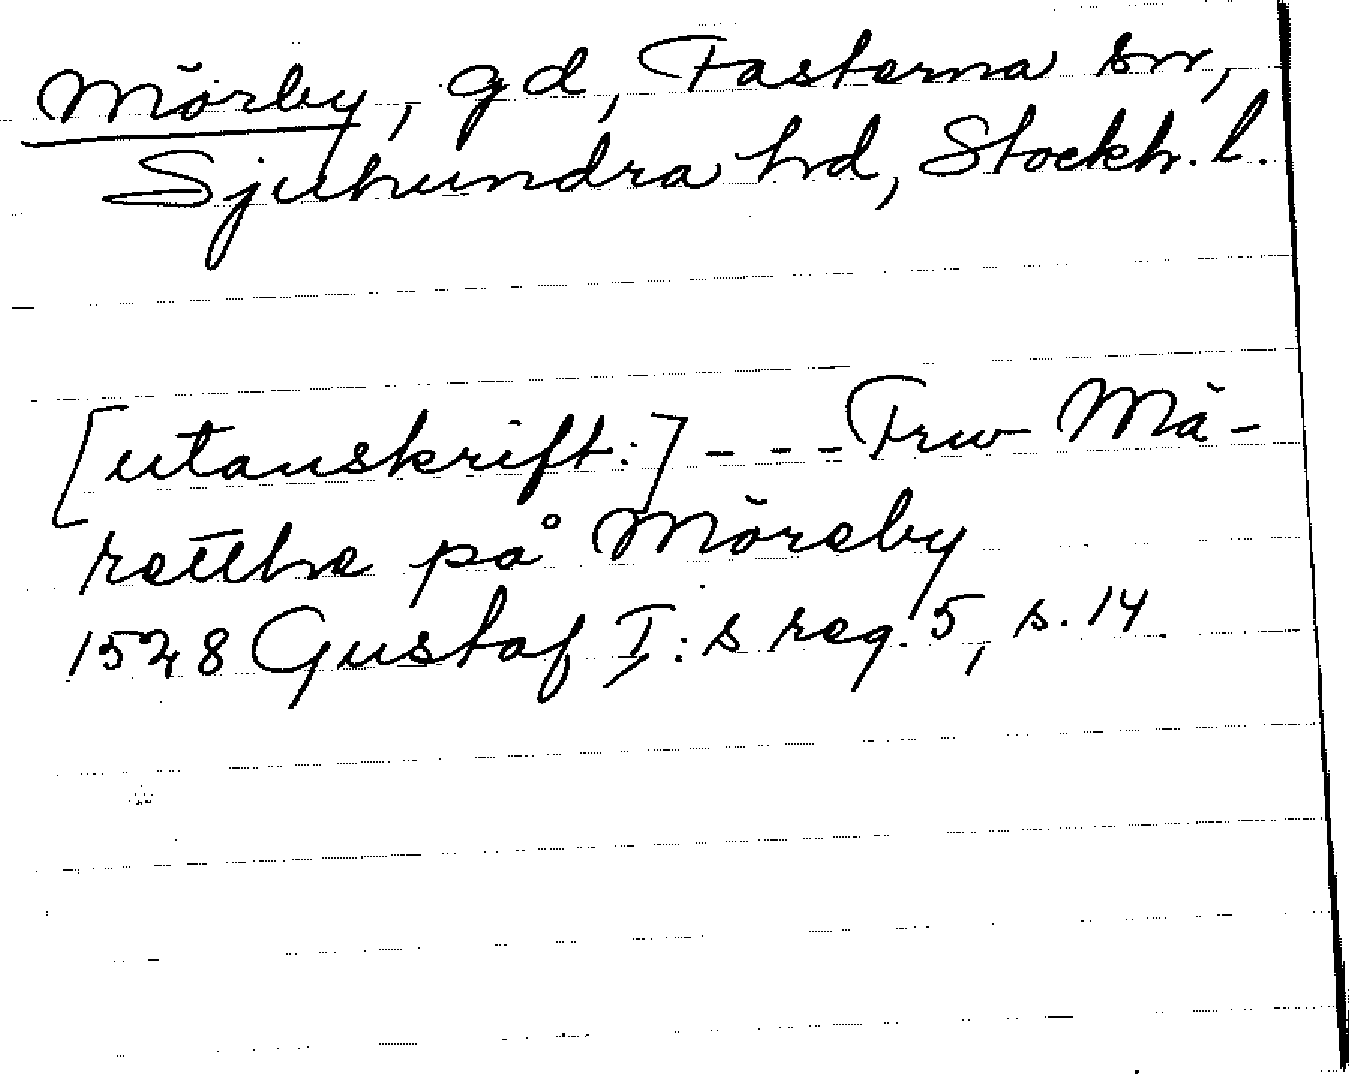 Mörby, gd, Fasterna sn,
Sjuhundra hd, Stockh. l.
[utanskrift:] - - - Frw Mä-
retthe på Möreby
1528 Gustaf I:s reg. 5, s. 14